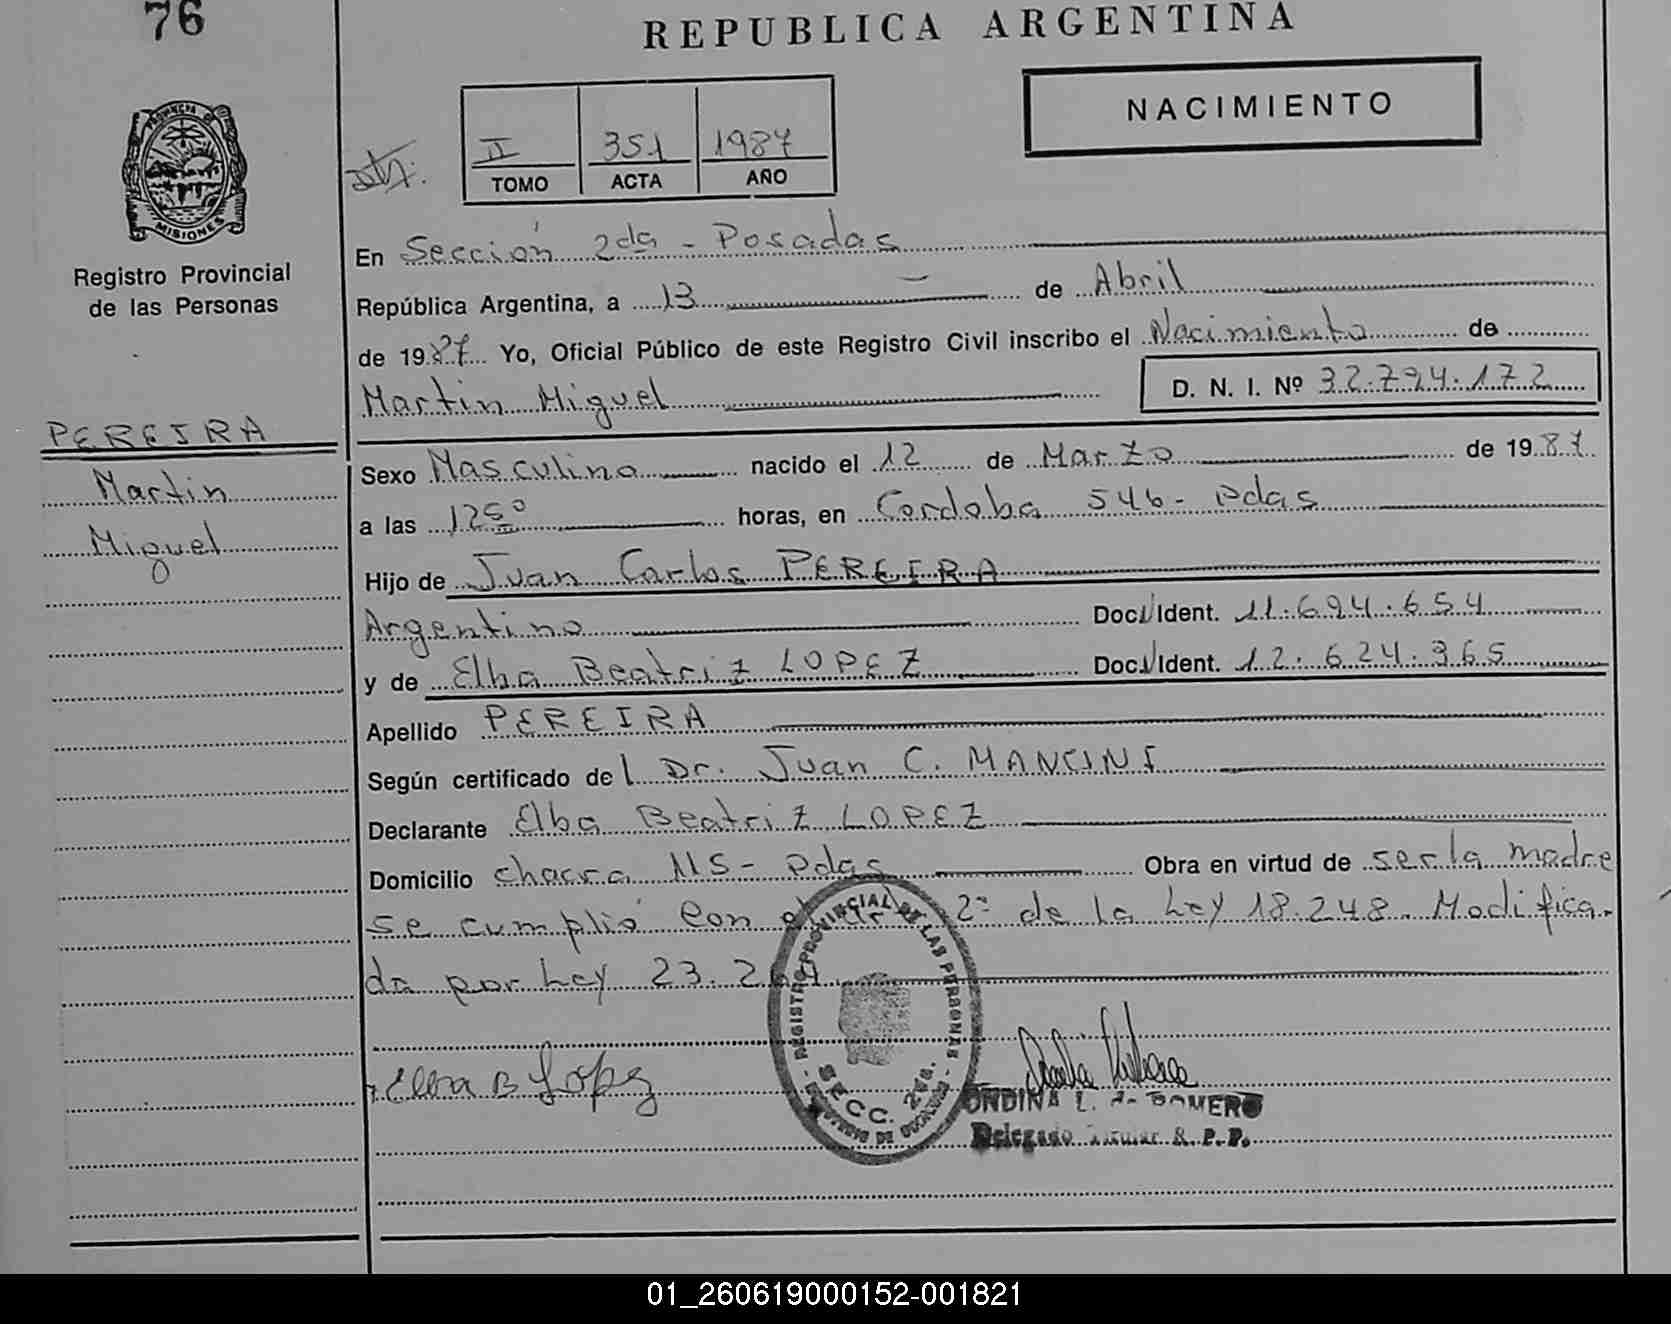 76
REPUBLICA ARGENTINA
NACIMIENTO
II 351 1987
TOMO ACTA AÑO
PROVINCIA
MISIONES
Registro Provincial
de las Personas
En Sección 2da - Posadas
República Argentina, a 13 de Abril
de 1987 Yo, Oficial Público de este Registro Civil inscribo el Nacimiento de
Martin Miguel D. N. I. Nº 32.794.172
PEREIRA
Martin
Miguel
Sexo Masculino nacido el 12 de Marzo de 1987
a las 1250 horas, en Cordoba 546- Pdas
Hijo de Juan Carlos PEREIRA
Argentino Doc. Ident. 11.694.654
y de Elba Beatriz LOPEZ Doc. Ident. 12.624.365
Apellido PEREIRA
Según certificado del Dr. Juan C. MANCINI
Declarante Elba Beatriz LOPEZ
Domicilio chacra 115- Pdas Obra en virtud de ser la madre
se cumplió con el 2º de la Ley 18.248. Modifica-
da por Ley 23.
REGISTRO PROVINCIAL DE LAS PERSONAS
SECC. 2da.
Elba B Lopez
ONDINA L. de ROMERO
Delegado Titular R. P. P.
01_260619000152-001821